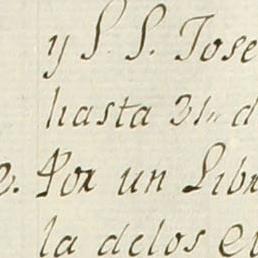 y S. S. Jose
hasta 31 d
Por un Libr
la delos